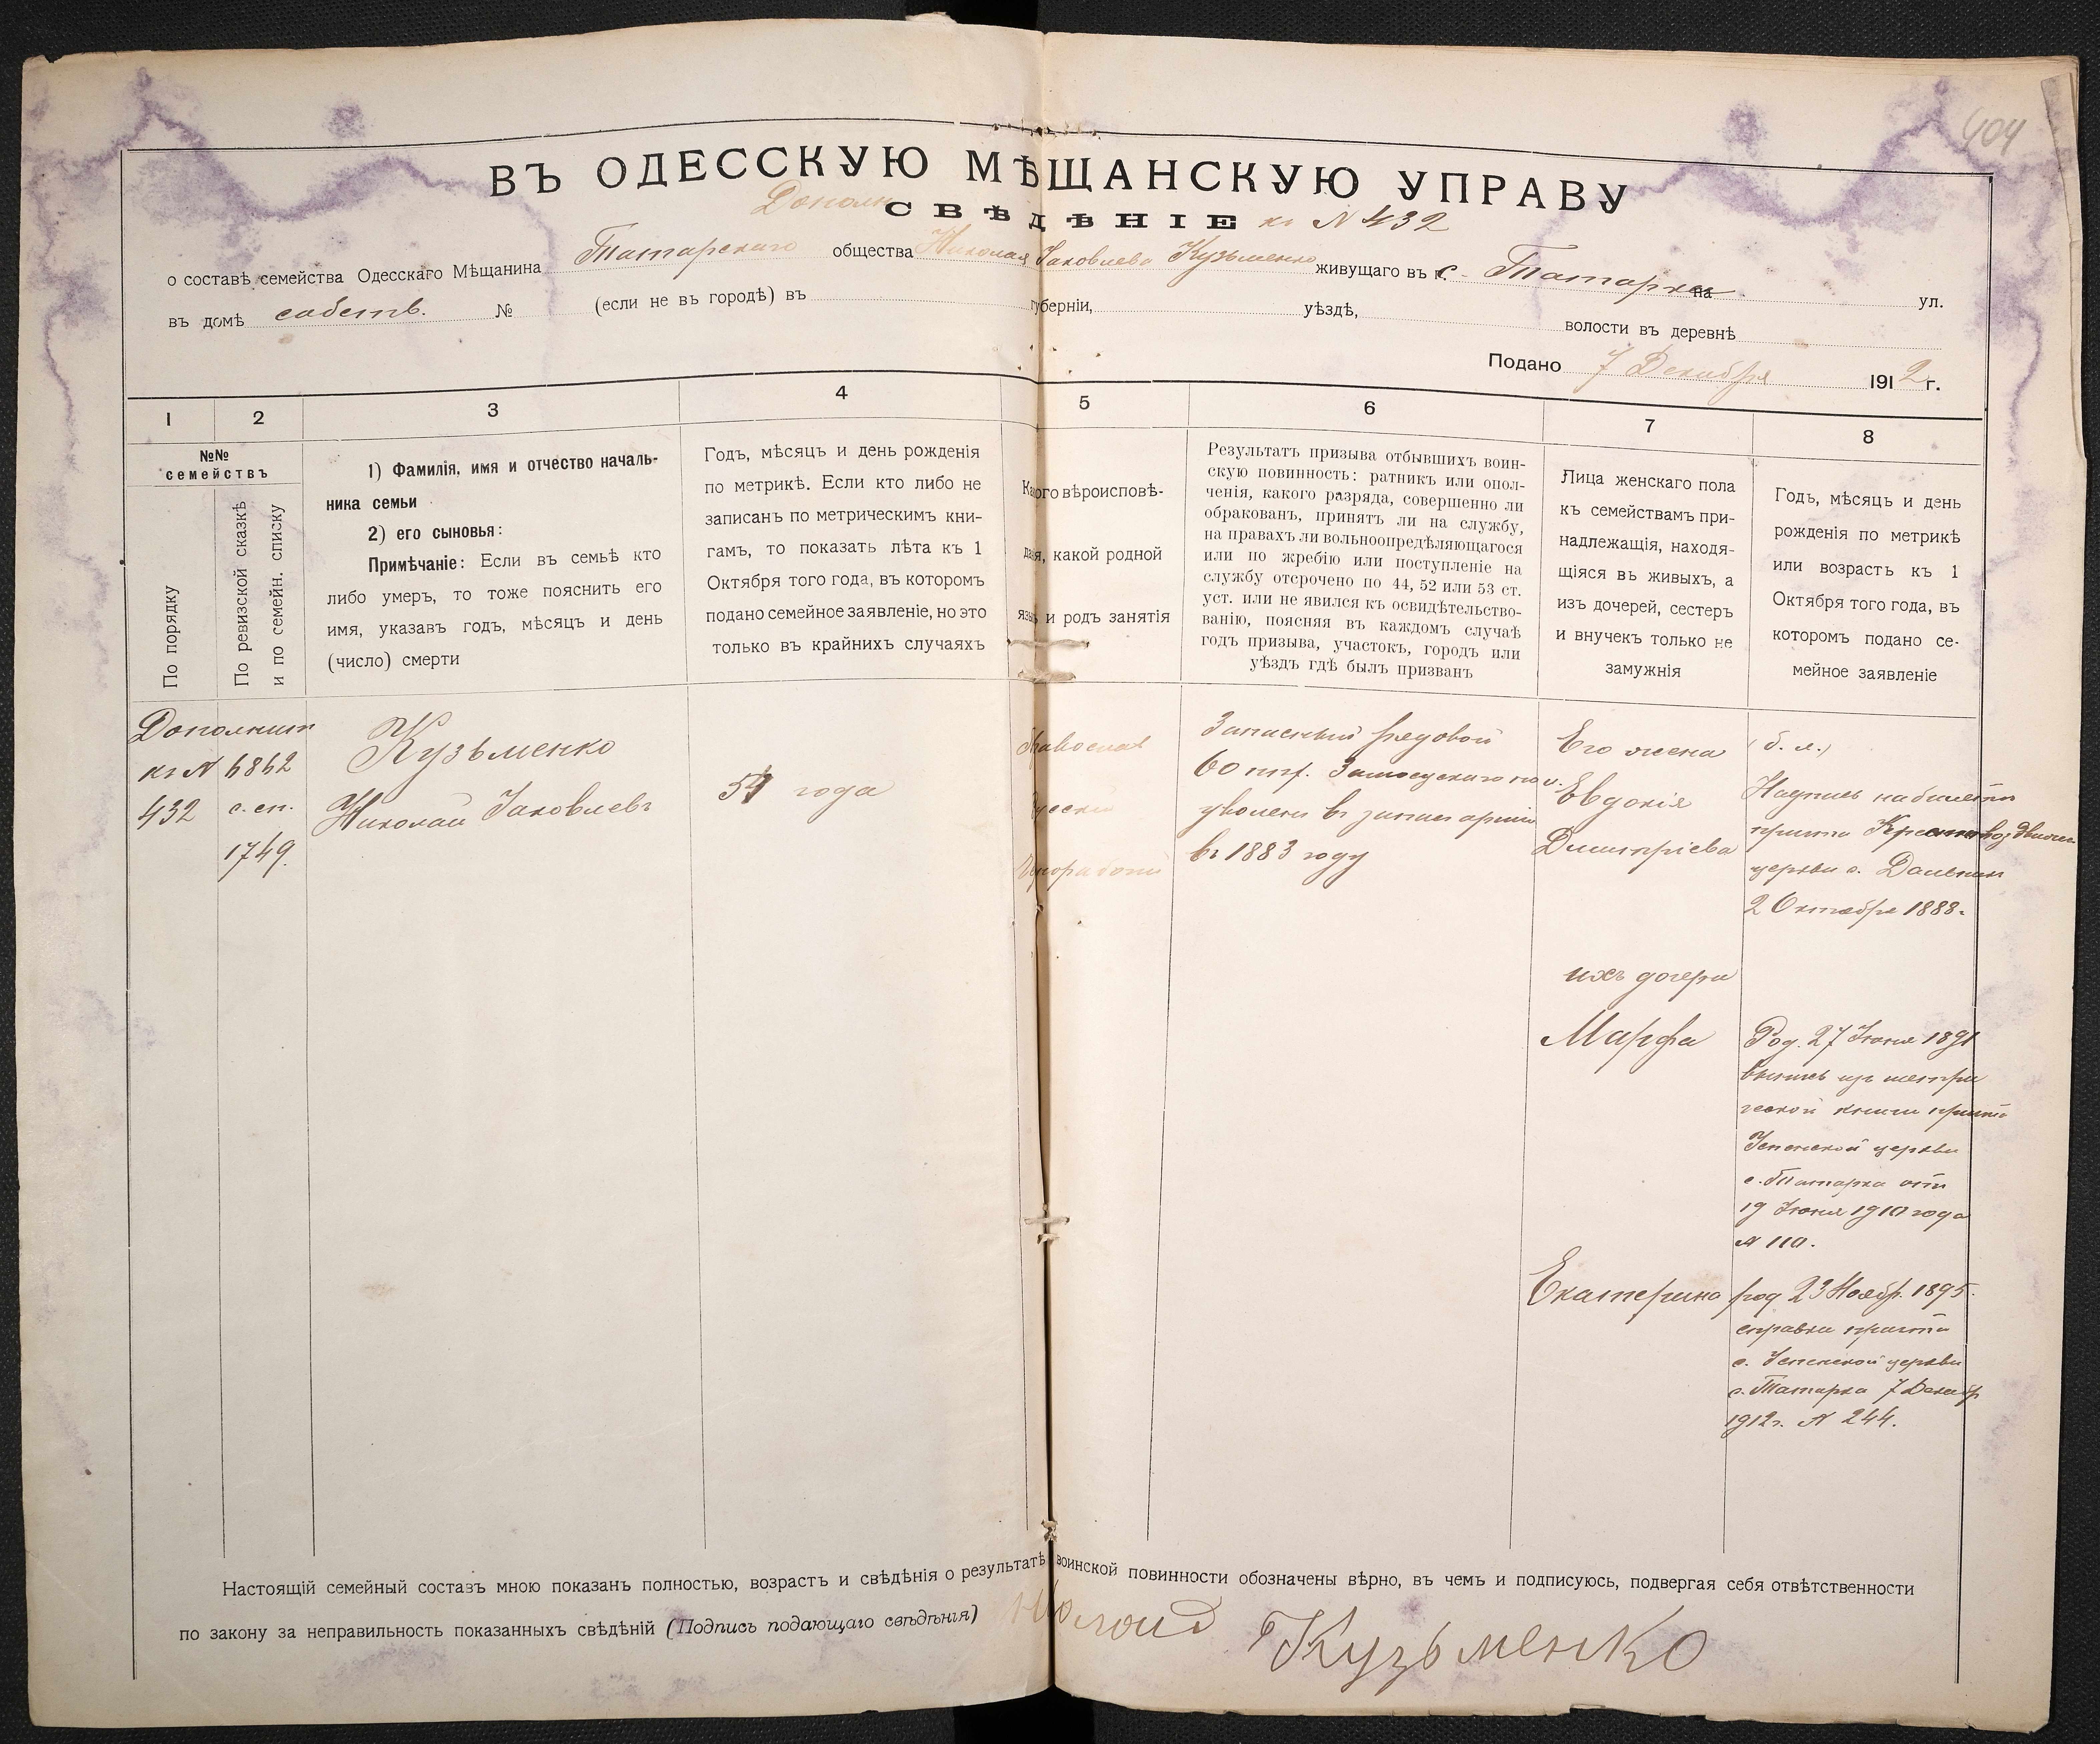 404
ВЪ ОДЕССКУЮ МѢЩАНСКУЮ УПРАВУ
Дополн СВѢДѢНІЕ къ № 432
о составѣ семейства Одесскаго Мѣщанина Татарскаго общества Николая Яковлева Кузьменко живущаго въ г. с. Татарка на ул.
въ домѣ собств. № (если не въ городѣ) въ губерніи, уѣздѣ, волости въ деревнѣ
Подано 7 Декабря 1912 г.
1 2 3 4 5 6 7 8
№№
семействъ
По порядку
По ревизской сказкѣ
и по семейн. списку
1) Фамилія, имя и отчество началь-
ника семьи
2) его сыновья:
Примѣчаніе: Если въ семьѣ кто
либо умеръ, то тоже пояснить его
имя, указавъ годъ, мѣсяцъ и день
(число) смерти
Годъ, мѣсяцъ и день рожденія
по метрикѣ. Если кто либо не
записанъ по метрическимъ кни-
гамъ, то показать лѣта къ 1
Октября того года, въ которомъ
подано семейное заявленіе, но это
только въ крайнихъ случаяхъ
Какого вѣроисповѣ-
данія, какой родной
языкъ и родъ занятія
Результатъ призыва отбывшихъ воин-
скую повинность: ратникъ или опол-
ченія, какого разряда, совершенно ли
обракованъ, принятъ ли на службу,
на правахъ ли вольноопредѣляющагося
или по жребію или поступленіе на
службу отсрочено по 44, 52 или 53 ст.
уст. или не явился къ освидѣтельство-
ванію, поясняя въ каждомъ случаѣ
годъ призыва, участокъ, городъ или
уѣздъ гдѣ былъ призванъ
Лица женскаго пола
къ семействамъ при-
надлежащія, находя-
щіяся въ живыхъ, а
изъ дочерей, сестеръ
и внучекъ только не
замужнія
Годъ, мѣсяцъ и день
рожденія по метрикѣ
или возрастъ къ 1
Октября того года, въ
которомъ подано се-
мейное заявленіе
Дополнит
къ №
432
6862
с. сп.
1749.
Кузьменко
Николай Яковлевъ
года
Православ
Русскій
Запасный рядовой
60 пѣх. Замосцскаго пол.
уволенъ въ запас арміи
въ 1883 году
Его жена
Евдокія
Дмитріева
Надпись на билетѣ
причта Крестовоздвижен
церкви с. Дальник
2 Октября 1888.
ихъ дочери
Марфа
Род. 27 Іюня 1891
выпись изъ метри
ческой книги причта
Успенской церкви
с. Татарка отъ
19 Іюня 1910 года
№ 110.
Екатерина
род 23 Ноябр. 1895.
справка причта
с. Успенской церкви
с. Татарка 7 Декабр
1912г. № 244.
Настоящій семейный составъ мною показанъ полностью, возрастъ и свѣдѣнія о результатѣ воинской повинности обозначены вѣрно, въ чемъ и подписуюсь, подвергая себя отвѣтственности
по закону за неправильность показанныхъ свѣдѣній (Подпись подающаго свѣдѣнія) Кузьменко